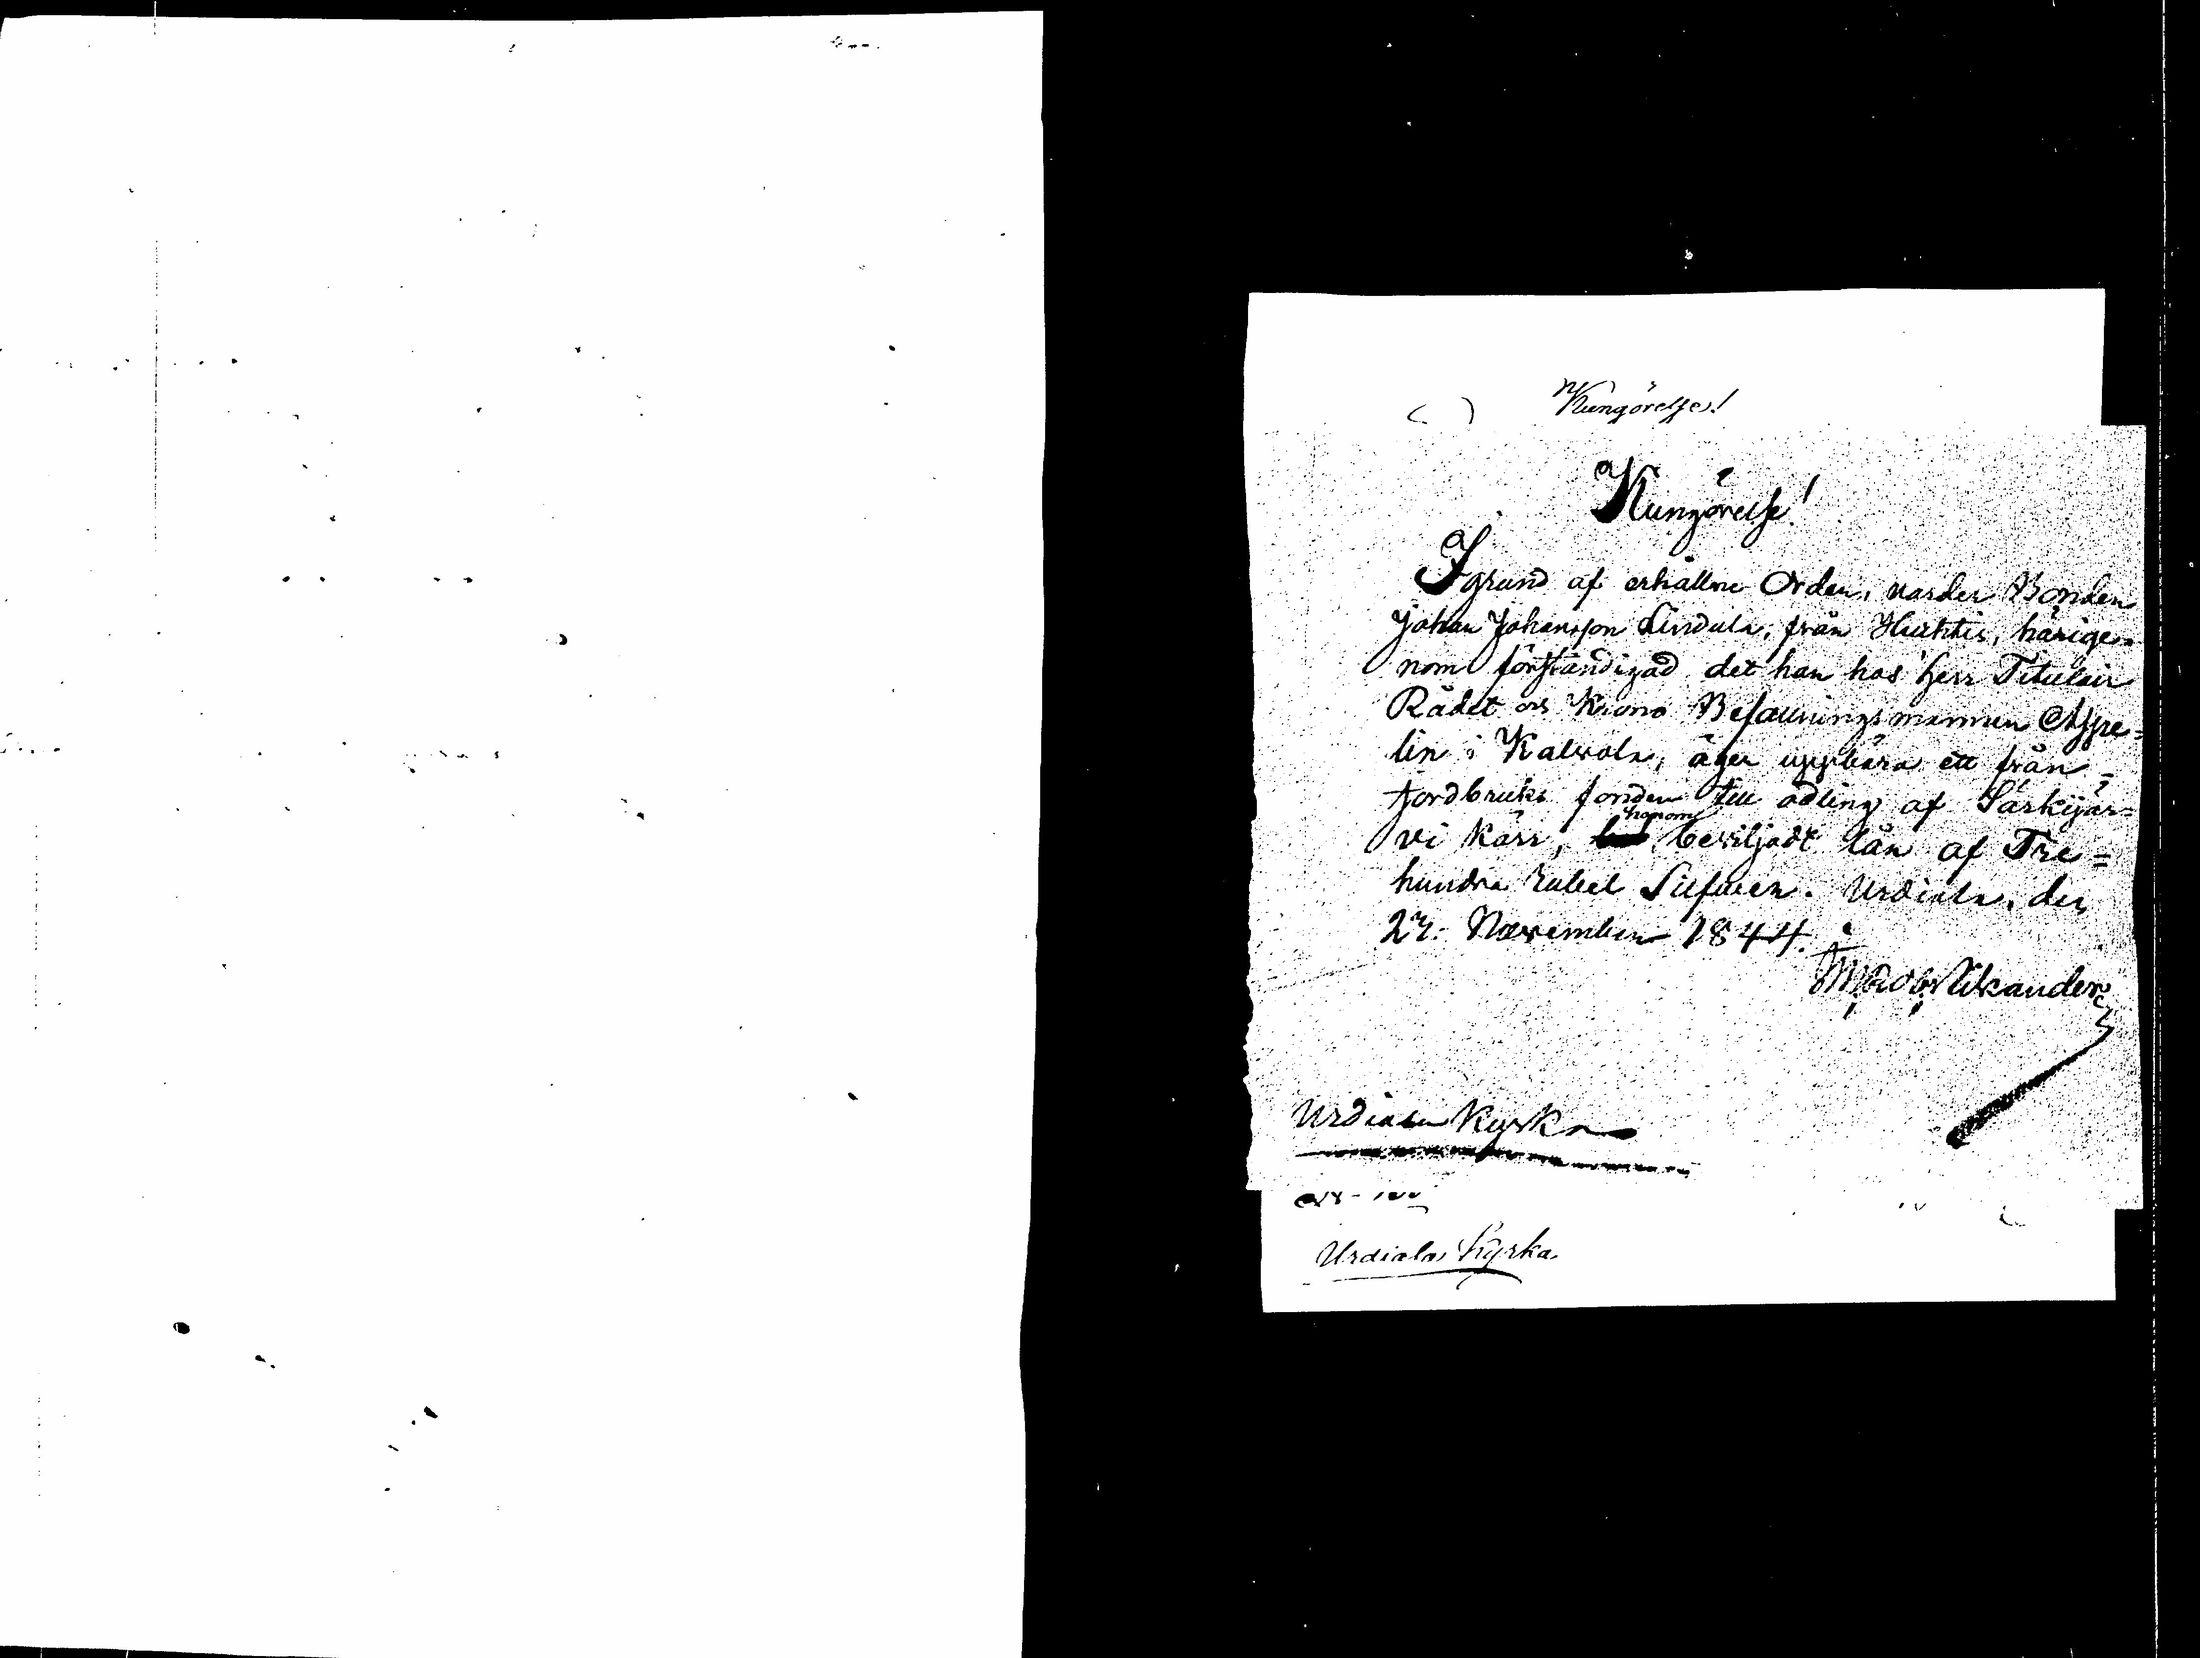 Kungörelse!
Kungörelse!
I grund af erhållne Orden, varder Bonden
Johan Johansson Lindula, från Huhtis, härige-
nom förständigad det han hos Herr Titulair
Rådet och Krono Befallningsmannen Appe-
lin i Kalvola, äger uppbära ett från
Jordbruks fonden till odling af Särkijär-
vi kärr, honom beviljadt lån af Tre=
hundra rubel Silfver. Urdiala, den
27. November 1844.
Wikander
Urdiala Kyrka
Urdiala Kyrka